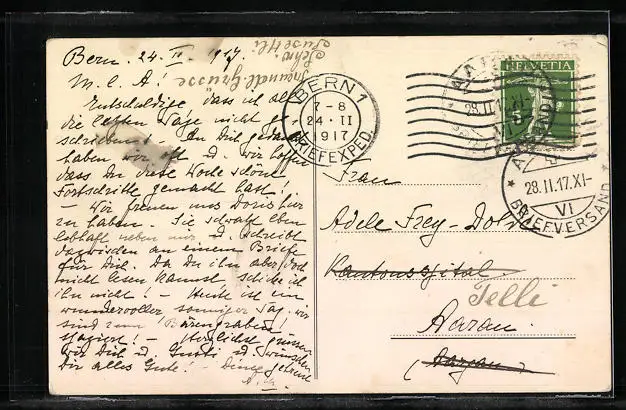 Bern. 24. II. 1917.
M. L. A!
Entschuldige, dass ich all
die letzten Tage nicht ge-
schrieben! An Dich gedacht
haben wir oft u. wir hoffen
dass Du diese Woche schöne
Fortschritte gemacht hast!
Wir freuen uns Doris hier
zu haben. Sie schwatzt eben
lebhaft neben mir u. schreibt
dazwischen an einem Briefe
für Dich. Da Du ihn aber doch
nicht lesen kannst, schicke ich
ihn nicht! - Heute ist ein
wundervoller sonniger Tag. wir
sind zum Bärengraben
spaziert! - Herzlichst grüssen
wir Dich u. u. wünschen
Dir alles Gute! - Deine getreue
Freundl. Grüsse
BERN 1
7-8
24. II
1917
BRIEFEXPED.
HELVETIA
5
28. II. 17. XI-
VI
BRIEFVERSAND
Frau
Adele Frey-
Kantonsspital
Telli
Aarau
(Aargau)